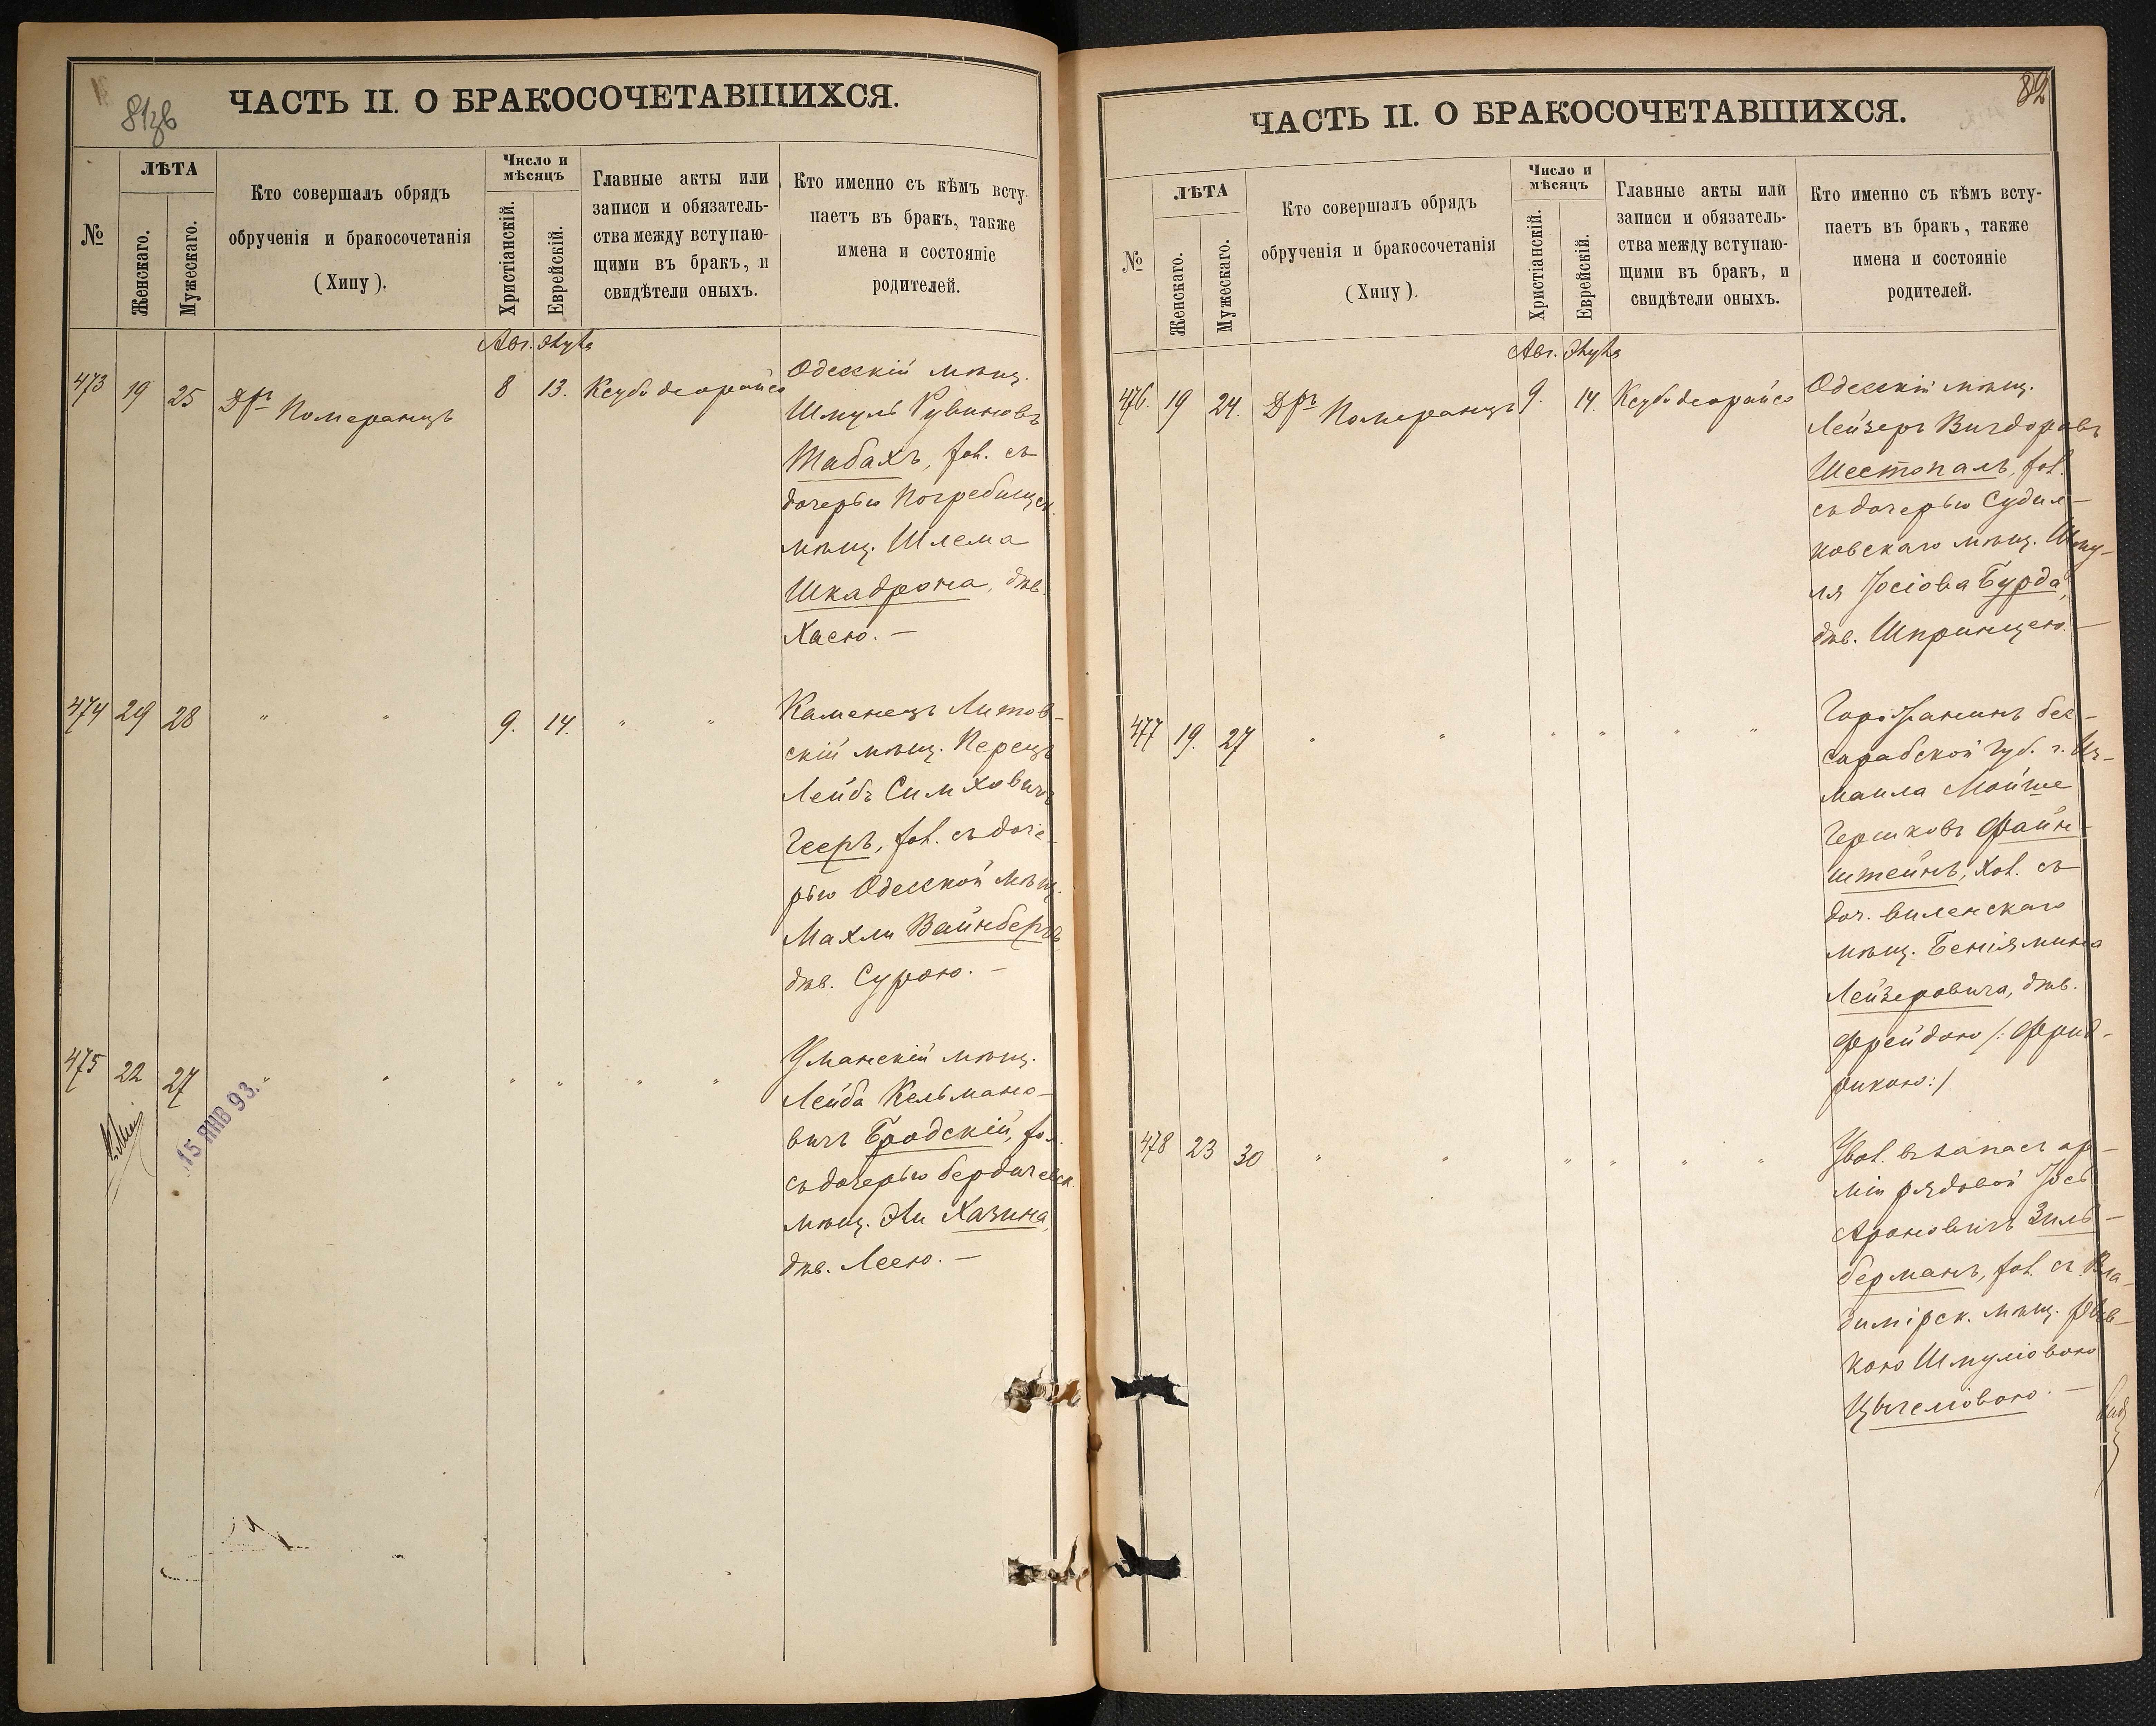 81об
ЧАСТЬ II. О БРАКОСОЧЕТАВШИХСЯ.
№
ЛѢТА
Женскаго.
Мужескаго.
Кто совершалъ обрядъ
обрученія и бракосочетанія
(Хипу).
Число и
мѣсяцъ
Христіанскій.
Еврейскій.
Главные акты или
записи и обязатель-
ства между вступаю-
щими въ бракъ, и
свидѣтели оныхъ.
Кто именно съ кѣмъ всту-
паетъ въ бракъ, также
имена и состояніе
родителей.
Авг.
473 19 25 Др. Померанцъ 8 13. Ксубо деорайсо
Одесскій мѣщ.
Шмуль Рувиновъ
Табахъ, хол. съ
дочерью Погребищск.
мѣщ. Шлема
Шкадрона, дѣв.
Хаею. —
474 29 28 " " 9. 14. " "
Каменецъ Литов-
скій мѣщ. Перецъ
Лейбъ Симховичъ
Гееръ, хол. съ доче-
рью Одесской мѣщ.
Махли Вайнбергъ
дѣв. Сурою. —
475 22 27 " " " " " "
Уманскій мѣщ.
Лейба Кельмано-
вичъ Бродскій, хол.
съ дочерью бердичевск.
мѣщ. Эли Хазина,
дѣв. Леею. —
15 ЯНВ 93.
82
ЧАСТЬ II. О БРАКОСОЧЕТАВШИХСЯ.
№
ЛѢТА
Женскаго.
Мужескаго.
Кто совершалъ обрядъ
обрученія и бракосочетанія
(Хипу).
Число и
мѣсяцъ
Христіанскій.
Еврейскій.
Главные акты или
записи и обязатель-
ства между вступаю-
щими въ бракъ, и
свидѣтели оныхъ.
Кто именно съ кѣмъ всту-
паетъ въ бракъ, также
имена и состояніе
родителей.
Авг.
476. 19 24. Др. Померанцъ 9. 14. Ксубо деорайсо
Одесскій мѣщ.
Лейзеръ Вигдоровъ
Шестопалъ, хол.
съ дочерью Судил-
ковскаго мѣщ. Шму-
ля Іосіова Бурда,
дѣв. Шпринцею. —
477 19. 27 " " " " " "
Гор. бес-
сарабской губ. г. Из-
маила Мойше
Гершковъ Файн-
штейнъ, хол. съ
доч. виленскаго
мѣщ. Беніямина
Лейзеровича, дѣв.
Фрейдою /: Фрид-
рикою :/
478 23 30 " " " " " "
Увол. въ запасъ ар-
міи рядовой Іось
Ароновичъ Зиль-
берманъ, хол. съ Вла-
димірск. мѣщ. Рив-
кою Шмуліовою